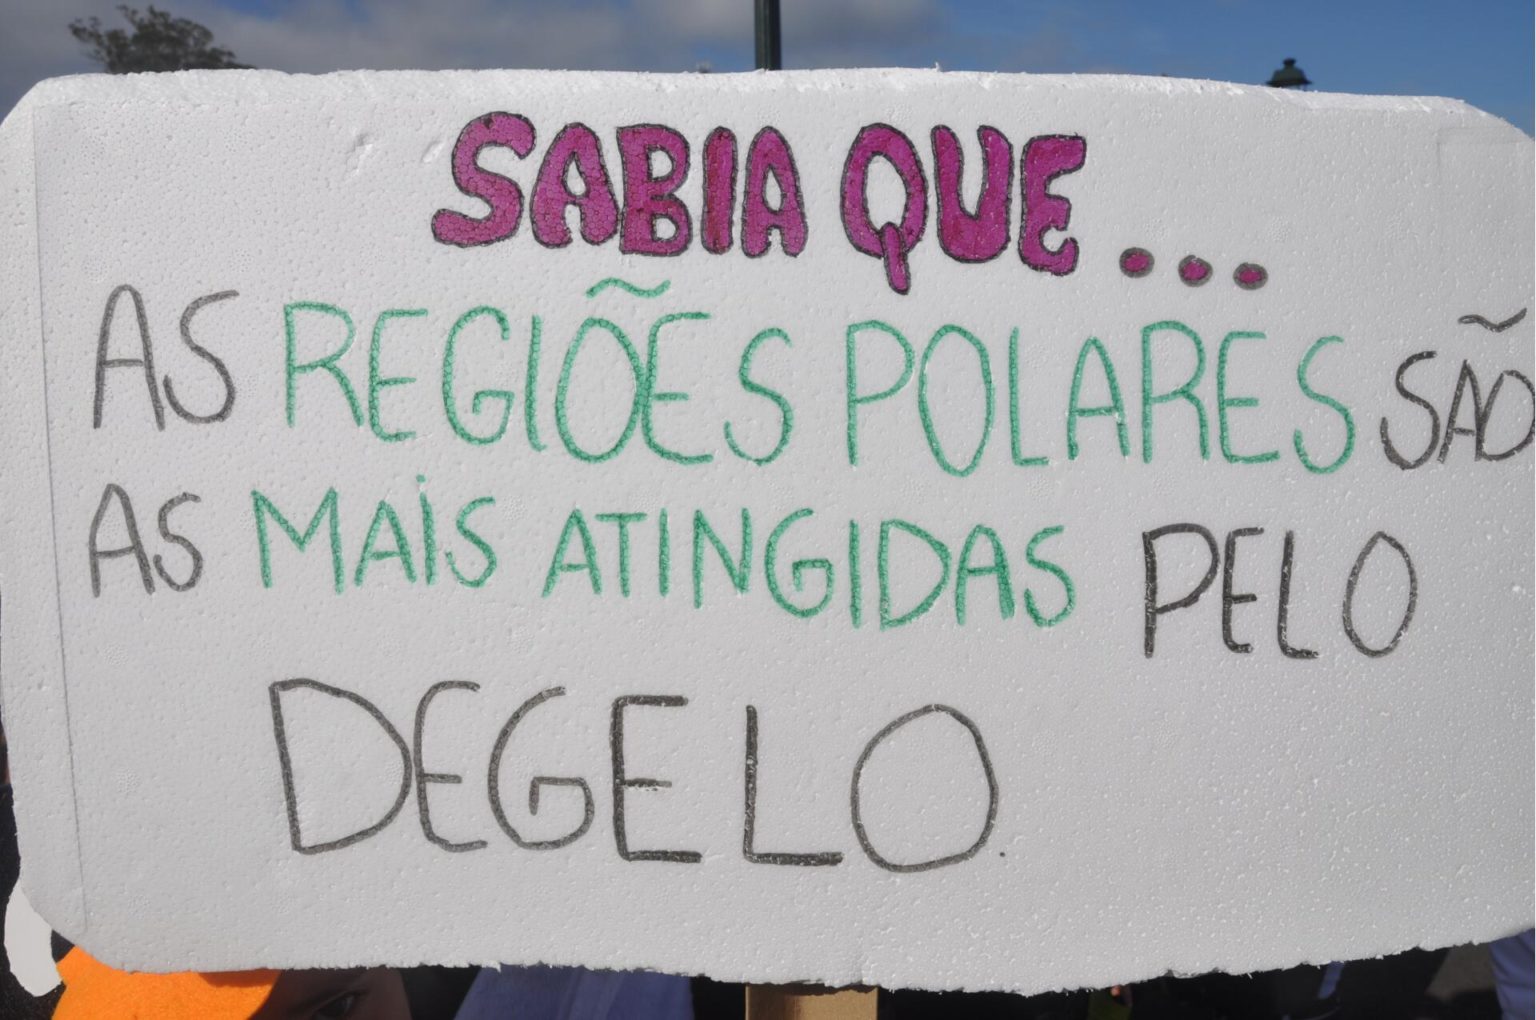 SABIA QUE...
AS REGIÕES POLARES SÃO
AS MAiS ATINGIDAS PELO
DEGELO.